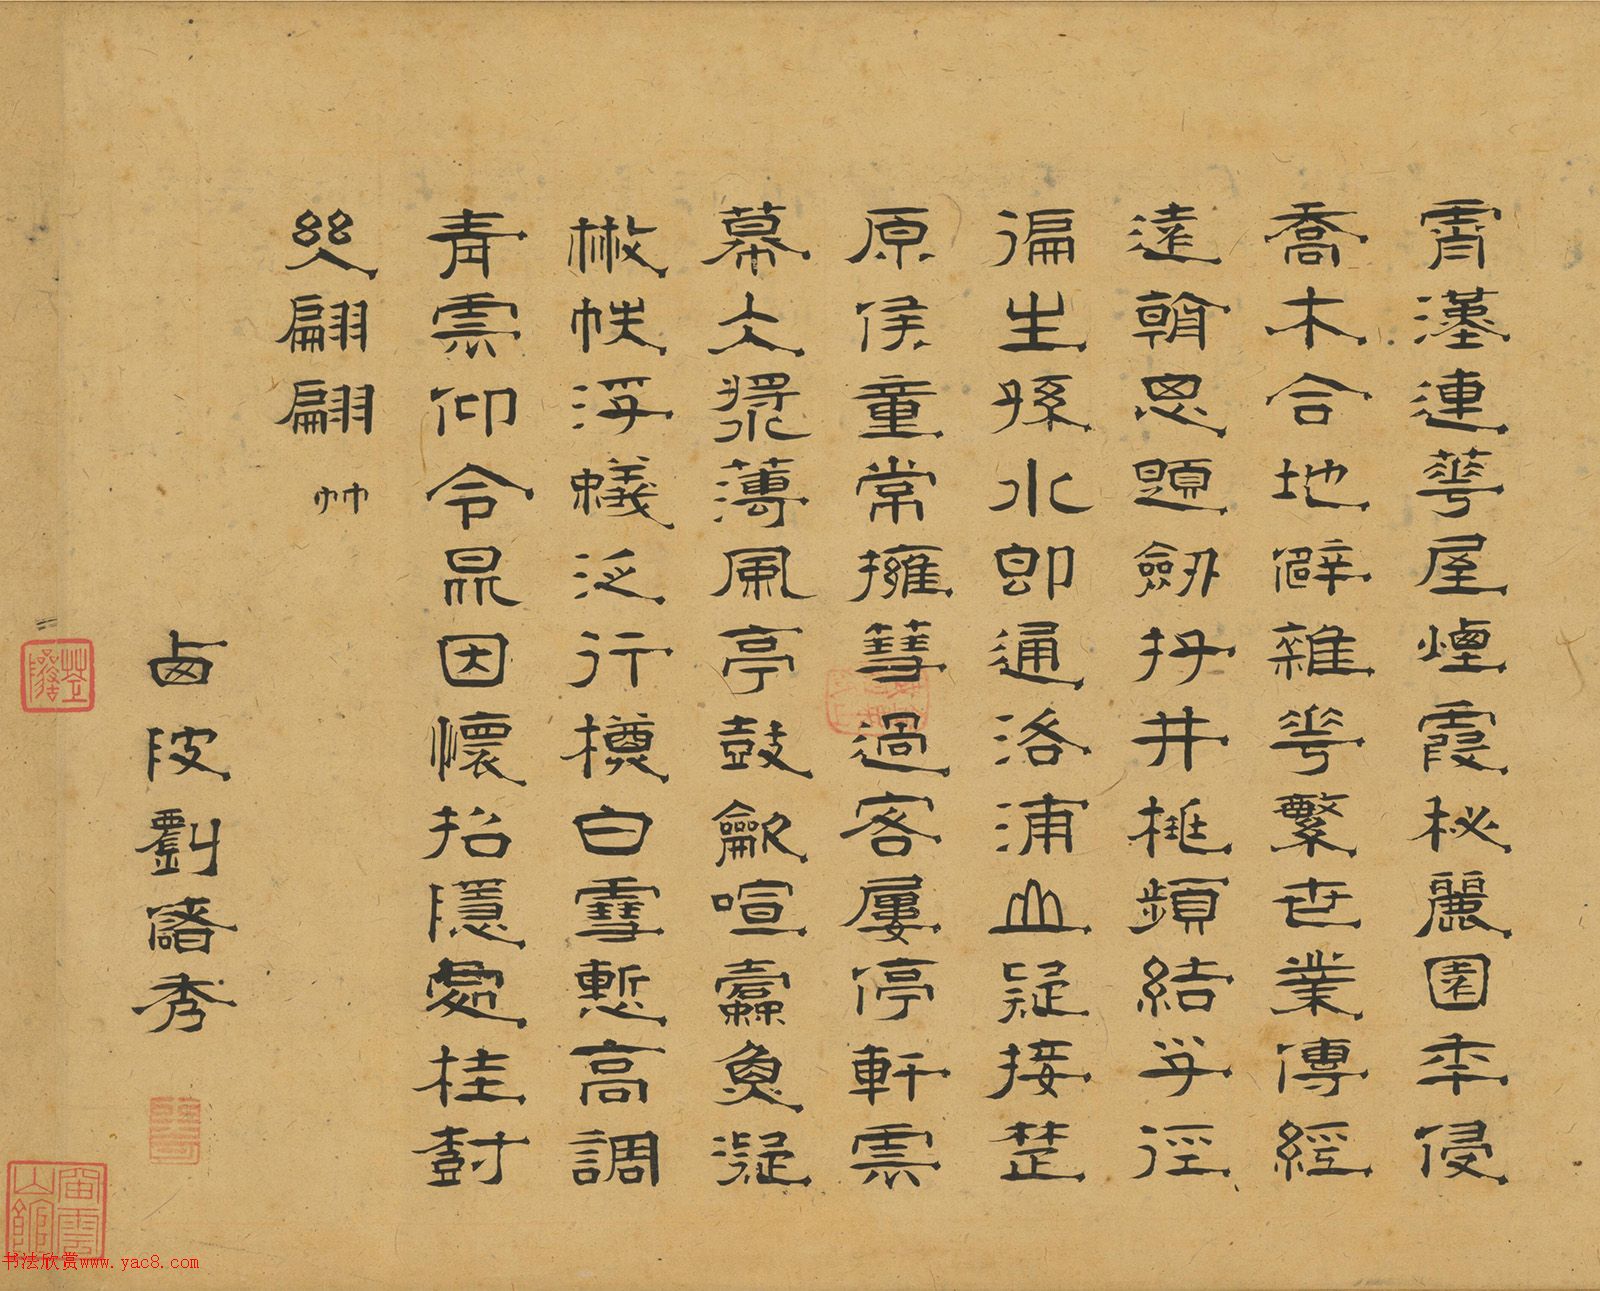 霄漢連華屋煙霞秘麗園年侵
喬木合地僻雜花繁世業傳經
遠朝恩題劍丹井桃頻結孚徑
徧生孫水即通洛浦山疑接楚
原侯童常擁彗過客屢停軒雲
幕衣裳薄風亭鼓龡喧蠹魚凝
散帙浮蟻泛行樽白雪慙高調
青雲仰令昆因懷招隱處桂樹
幾翩翩 艸
西陂劉儲秀
书法欣赏www.yac8.com